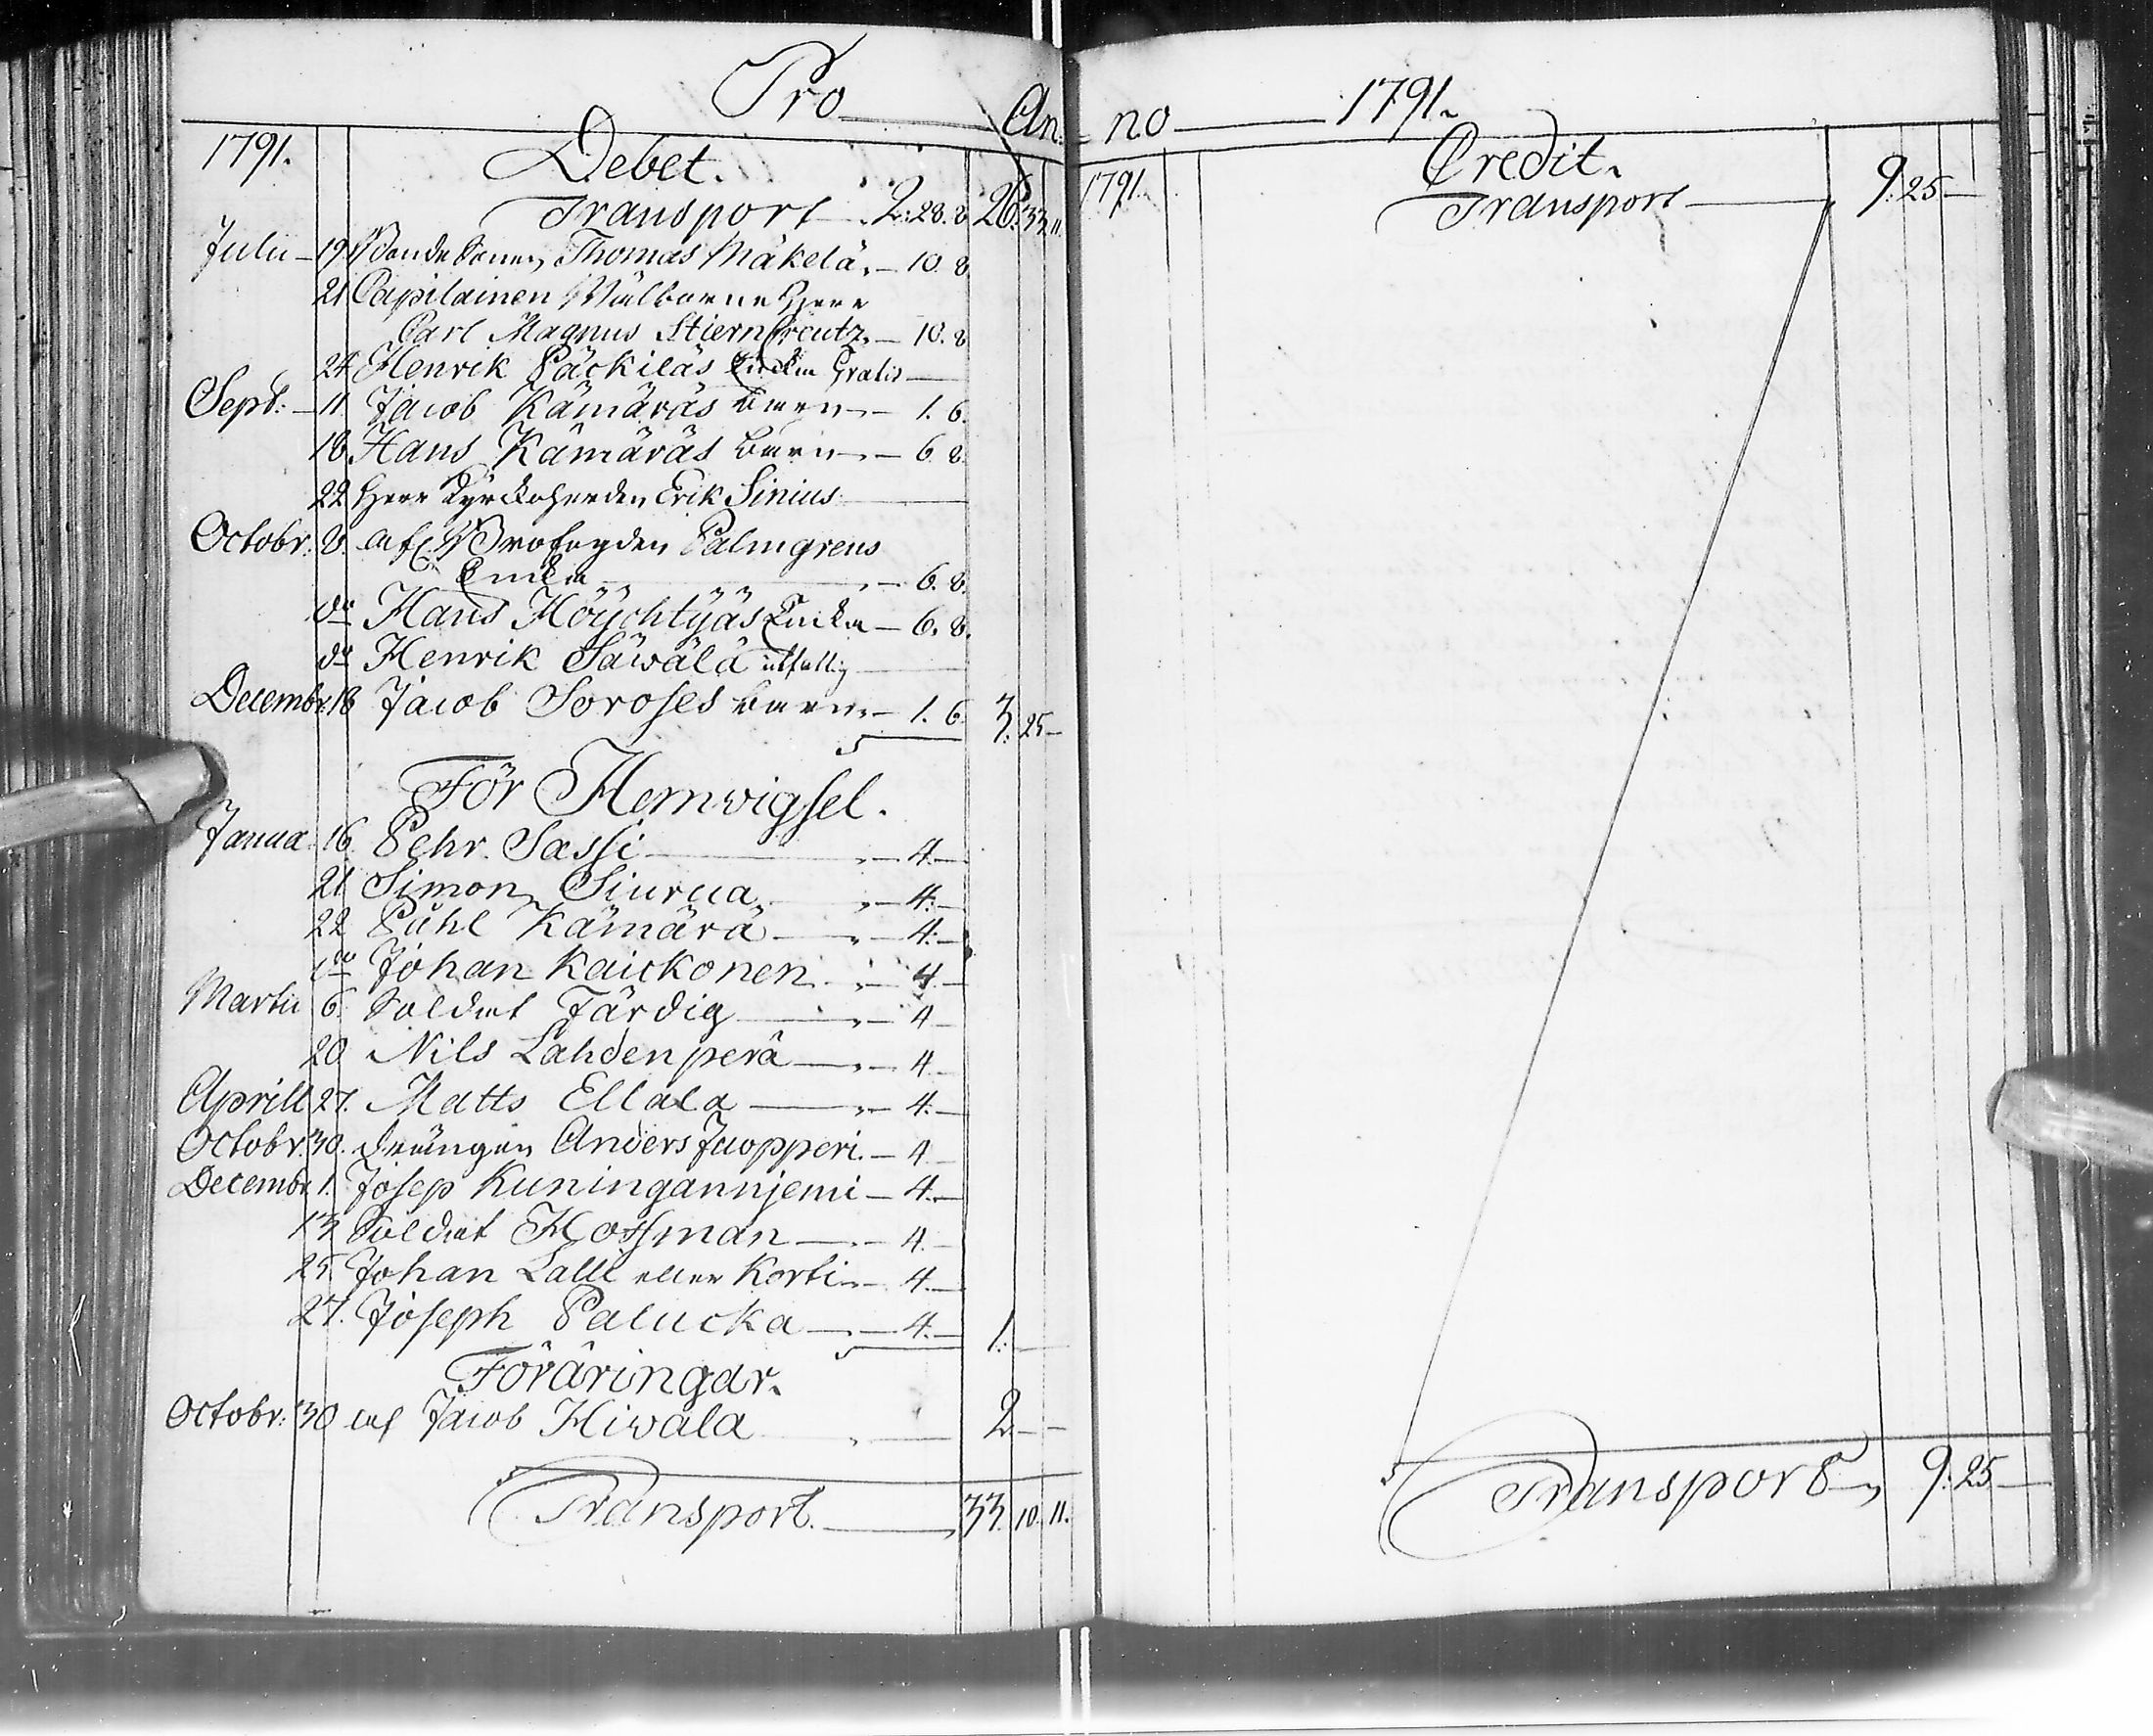 Pro An-
1791.
Debet.
Transport 2: 28. 8 26: 33. 11.
Julii 19 Bonde Sonen Thomas Mäkelä, — 10. 8
21 Capitainen Wälborne Herr
Carl Magnus Stierncreutz, — 10. 8
24 Henrik Päckiläs Enckia Gratis
Sept: 11 Jacob Kämäräs barn — 1. 6.
18 Hans Kämäräs barn — 6. 8.
22 Herr Kyrckoherden Erik Sinius
Octobr. 8. afl. Brofogden Palmgrens
Enckia — 6. 8.
do Hans Höychtyäs Enckia — 6. 8.
do Henrik Säwälä utfattig
Decembr. 18 Jacob Soroses barn — 1. 6. 3: 25 —
För Hemwigsel.
Janua. 16. Pehr Sassi — 4. —
21 Simon Siurua — 4: —
22 Påhl Kämärä — 4: —
do Johan Kaickonen — 4 —
Martii 6. Soldat Färdig — 4 —
20 Nils Lahdenperä — 4 —
Aprill 27. Matts Ellala — 4. —
Octobr. 30. drängen Anders Juopperi — 4 —
Decembr. 1. Josep Kuninganniemi — 4. —
13 Soldat Hoffman — 4. —
25. Johan Lalli eller Korti — 4. —
27. Joseph Palucka — 4. — 1: —
Föräringar.
Octobr: 30 af Jacob Hiwala 2 — —
Transport. 33. 10. 11.
no 1791.
1791.
Credit.
Transport 9: 25 —
Transport 9: 25 —